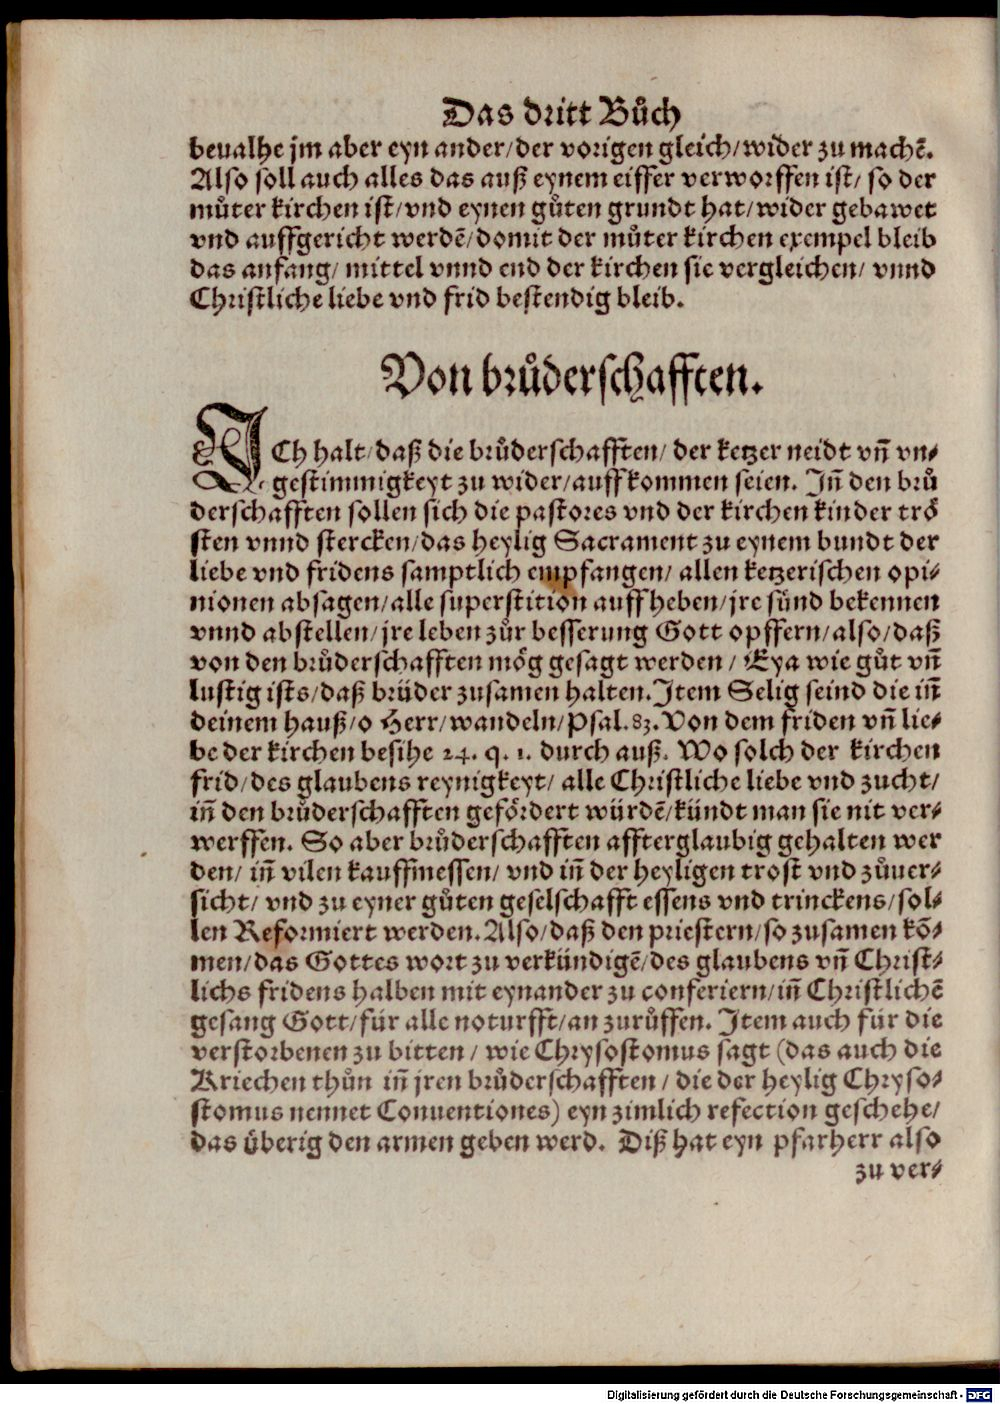 Das dritt Bůch
beualhe jm aber eyn ander/der vorigen gleich/wider zu machē.
Also soll auch alles das auß eynem eiffer verworffen ist/ so der
můter kirchen ist/vnd eynen gůten grundt hat/wider gebawet
vnd auffgericht werdē/domit der můter kirchen exempel bleib
das anfang/ mittel vnnd end der kirchen sie vergleichen/ vnnd
Christliche liebe vnd frid bestendig bleib.
Von brůderschafften.
ICh halt/daß die brůderschafften/ der ketzer neidt vn̄ vn⸗
gestimmigkeyt zu wider/auffkommen seien. Jn̄ den brů
derschafften sollen sich die pastores vnd der kirchen kinder trö
sten vnnd stercken/das heylig Sacrament zu eynem bundt der
liebe vnd fridens samptlich empfangen/ allen ketzerischen opi⸗
nionen absagen/alle superstition auffheben/jre sünd bekennen
vnnd abstellen/jre leben zůr besserung Gott opffern/also/daß
von den brůderschafften mög gesagt werden/ Eya wie gůt vn̄
lustig ists/daß brüder zusamen halten. Jtem Selig seind die in̄
deinem hauß/o Herr/wandeln/Psal.83. Von dem friden vn̄ lie⸗
be der kirchen besihe 24. q. 1. durch auß. Wo solch der kirchen
frid/des glaubens reynigkeyt/ alle Christliche liebe vnd zucht/
in̄ den brůderschafften gefördert würdē/kündt man sie nit ver⸗
werffen. So aber brůderschafften affterglaubig gehalten wer
den/ in̄ vilen kauffmessen/ vnd in̄ der heyligen trost vnd zůuer⸗
sicht/ vnd zu eyner gůten geselschafft essens vnd trinckens/sol⸗
len Reformiert werden. Also/daß den priestern/so zusamen kō⸗
men/das Gottes wort zu verkündigē/des glaubens vn̄ Christ⸗
lichs fridens halben mit eynander zu conferiern/in̄ Christlichē
gesang Gott/für alle noturfft/an zurůffen. Jtem auch für die
verstorbenen zu bitten/ wie Chrysostomus sagt (das auch die
Kriechen thůn in̄ jren brůderschafften/ die der heylig Chryso⸗
stomus nennet Conuentiones) eyn zimlich refection geschehe/
das überig den armen geben werd. Diß hat eyn pfarherr also
zu ver⸗
Digitalisierung gefördert durch die Deutsche Forschungsgemeinschaft - DFG